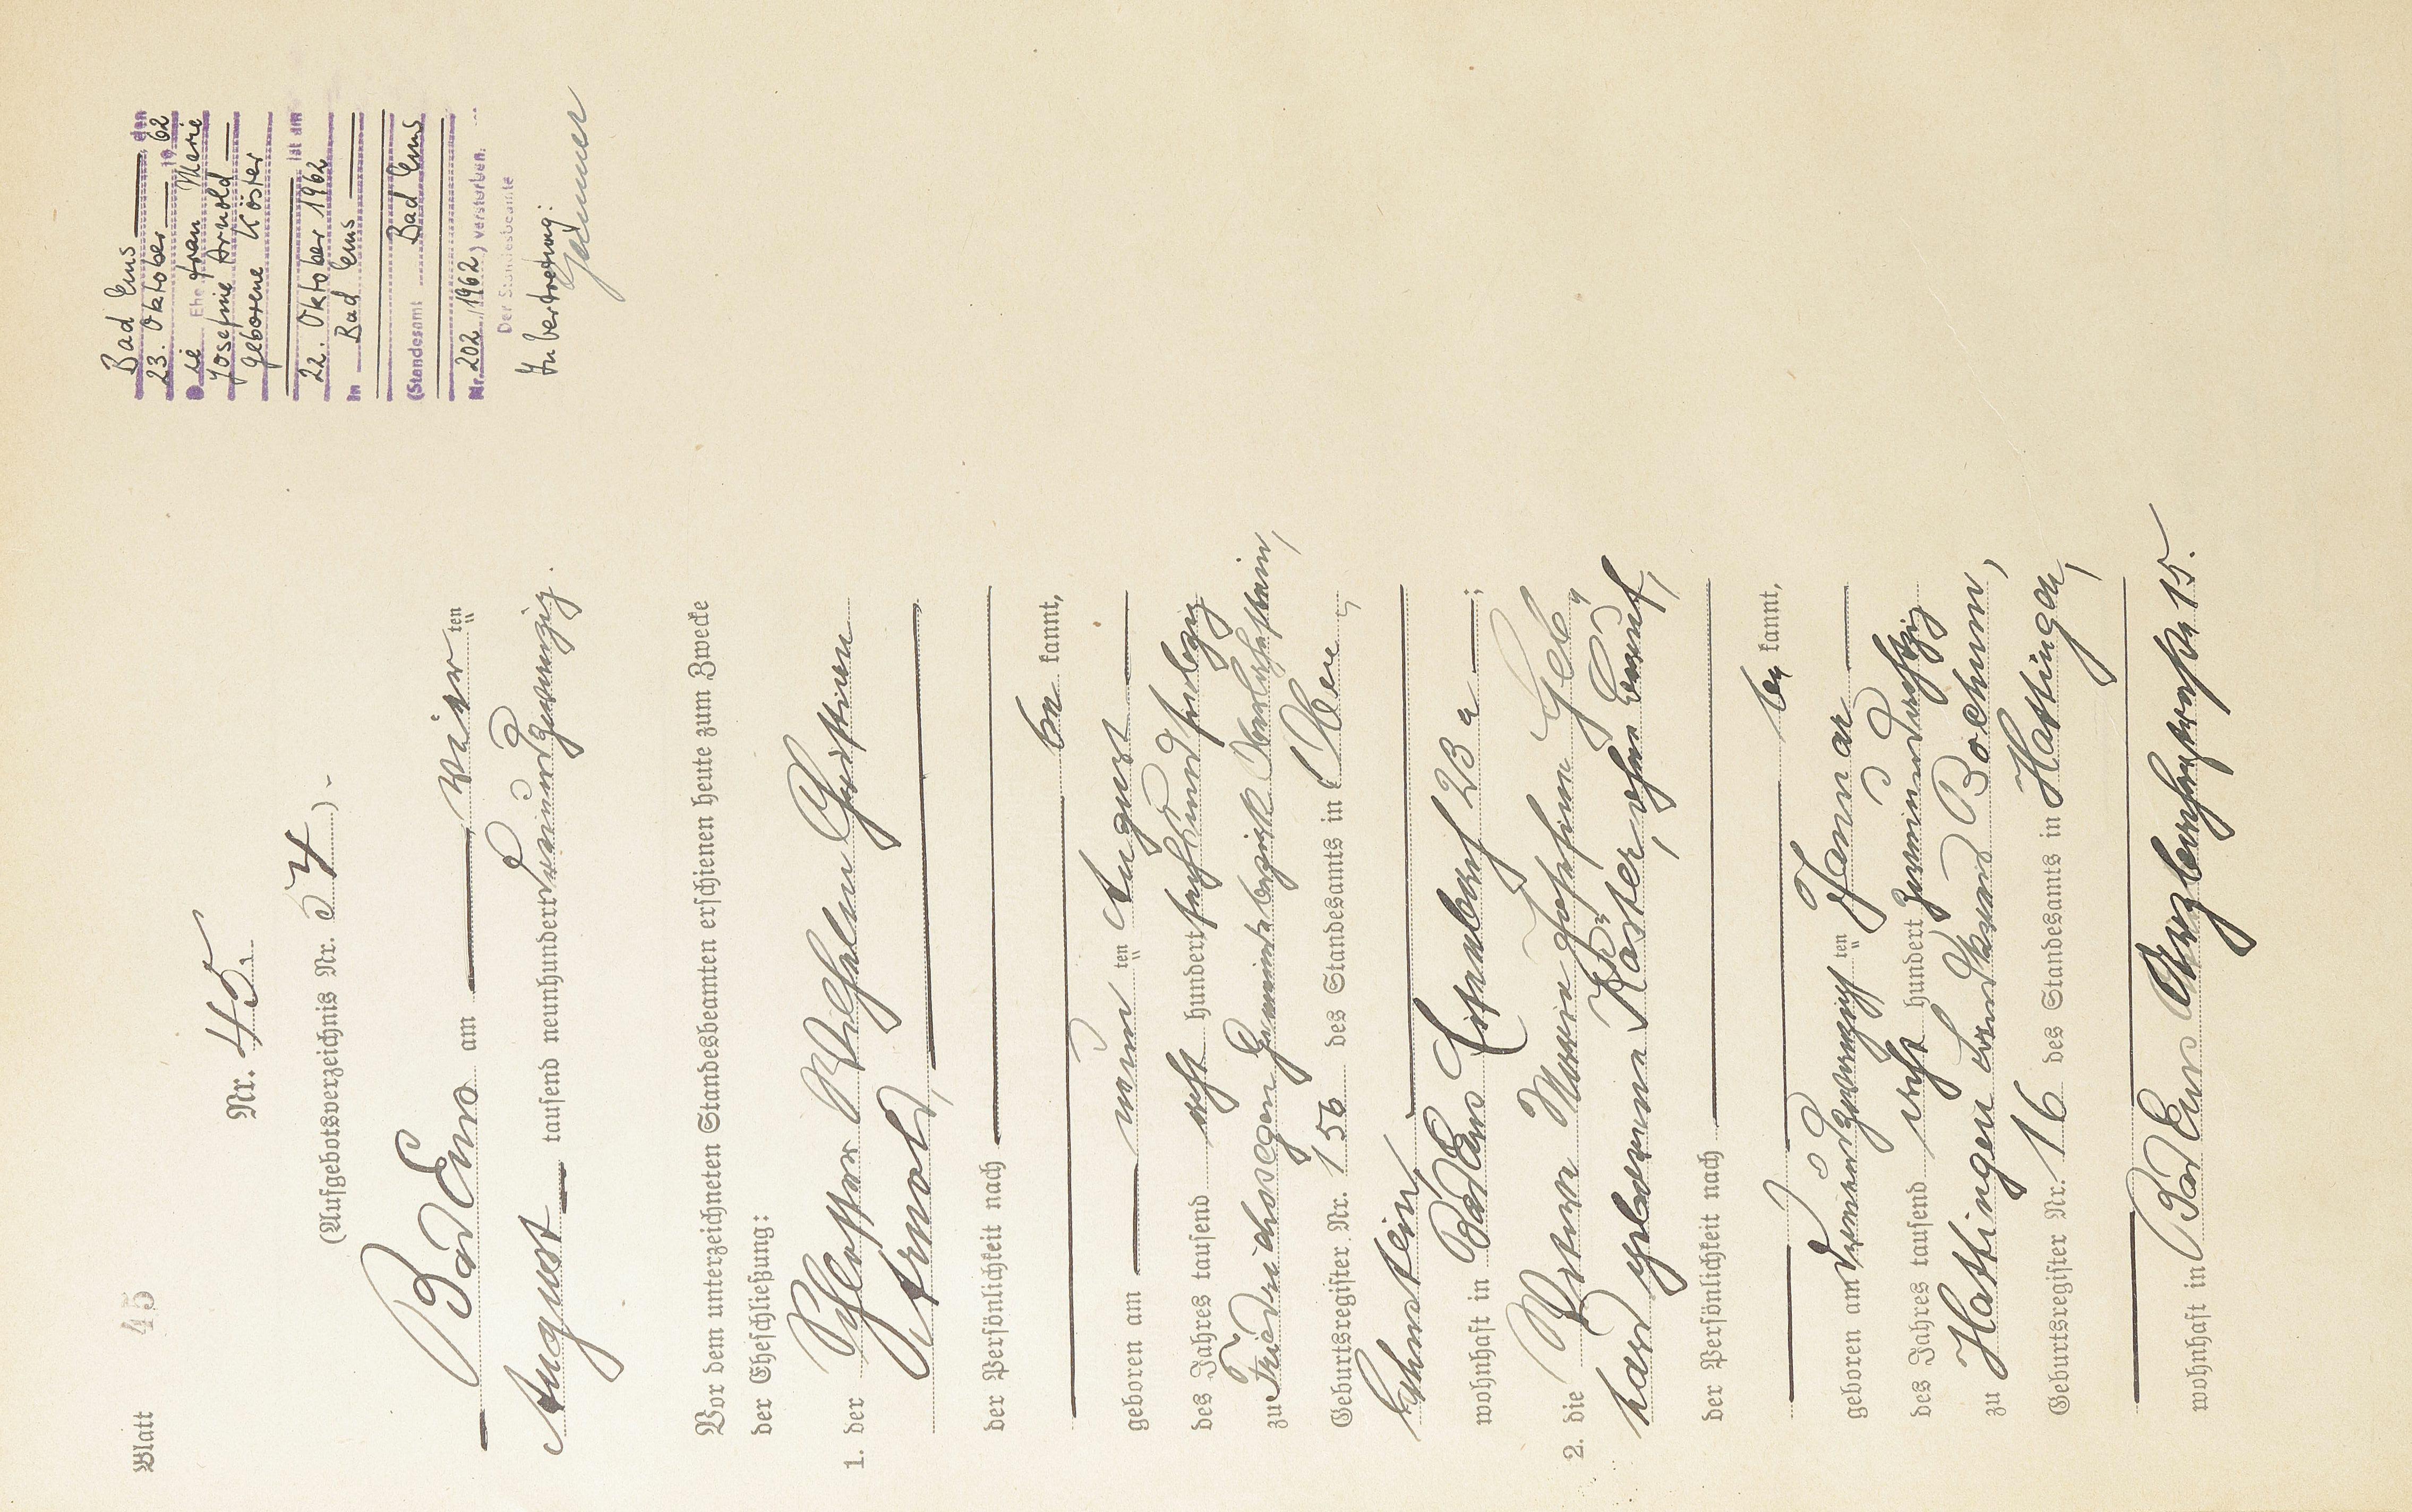 Blatt 45
Nr. 45.
(Aufgebotsverzeichnis Nr. 54).
Bad Ems am vier ten
August tausend neunhundert neunundzwanzig.
Vor dem unterzeichneten Standesbeamten erschienen heute zum Zwecke
der Eheschließung:
1. der Schlosser Wilhelm Christian
Arnold,
der Persönlichkeit nach
be kannt,
geboren am neun ten August
des Jahres tausend acht hundert sechsundsiebzig
zu Friedrichssegen Gemeindebezirk Oberlahnstein,
Geburtsregister Nr. 156 des Standesamts in Ober
lahnstein,
wohnhaft in Bad Ems Eisenbach 23 a ;
2. die Witwe Maria Josefine Geb
hard geborene Köster, ohne Beruf,
der Persönlichkeit nach
be kannt,
geboren am dreiundzwanzigsten ten Januar
des Jahres tausend acht hundert zweiundachtzig
zu Hattingen Landkreis Bochum,
Geburtsregister Nr. 16 des Standesamts in Hattingen,
wohnhaft in Bad Ems Arzbacherstraße 15.
Bad Ems, den
23. Oktober 1962
Die Ehefrau Marie
Josefine Arnold
geborene Köster
ist am
22. Oktober 1962
in Bad Ems
(Standesamt Bad Ems
Nr. 202/1962) verstorben.
Der Standesbeamte
In Vertretung: